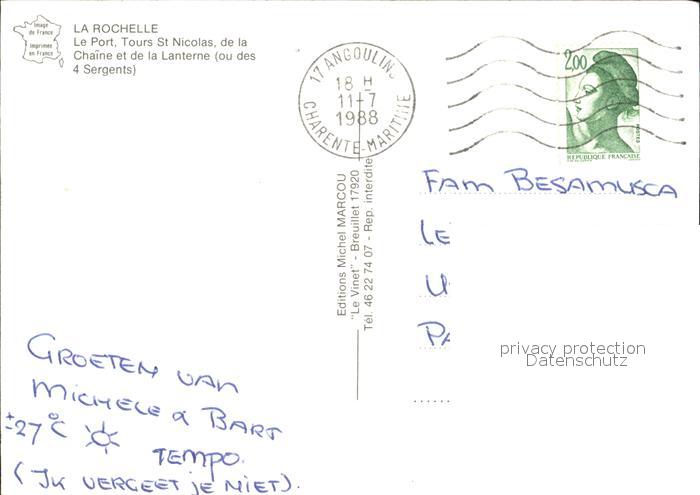 Image
de France
Imprimée
en France
LA ROCHELLE
Le Port, Tours St Nicolas, de la
Chaîne et de la Lanterne (ou des
4 Sergents)
17 ANGOULINS
18 H
11-7
1988
CHARENTE-MARITIME
2,00
POSTES
REPUBLIQUE FRANÇAISE
Editions Michel MARCOU
"Le Vinet" - Breuillet 17920
Tél. 46 22 74 07 - Rep. interdite
FAM BESAMUSCA
LE
U
PA
privacy protection
Datenschutz
GROETEN VAN
MICHELE & BART
±27°C
TEMPO.
(IK VERGEET JE NIET).